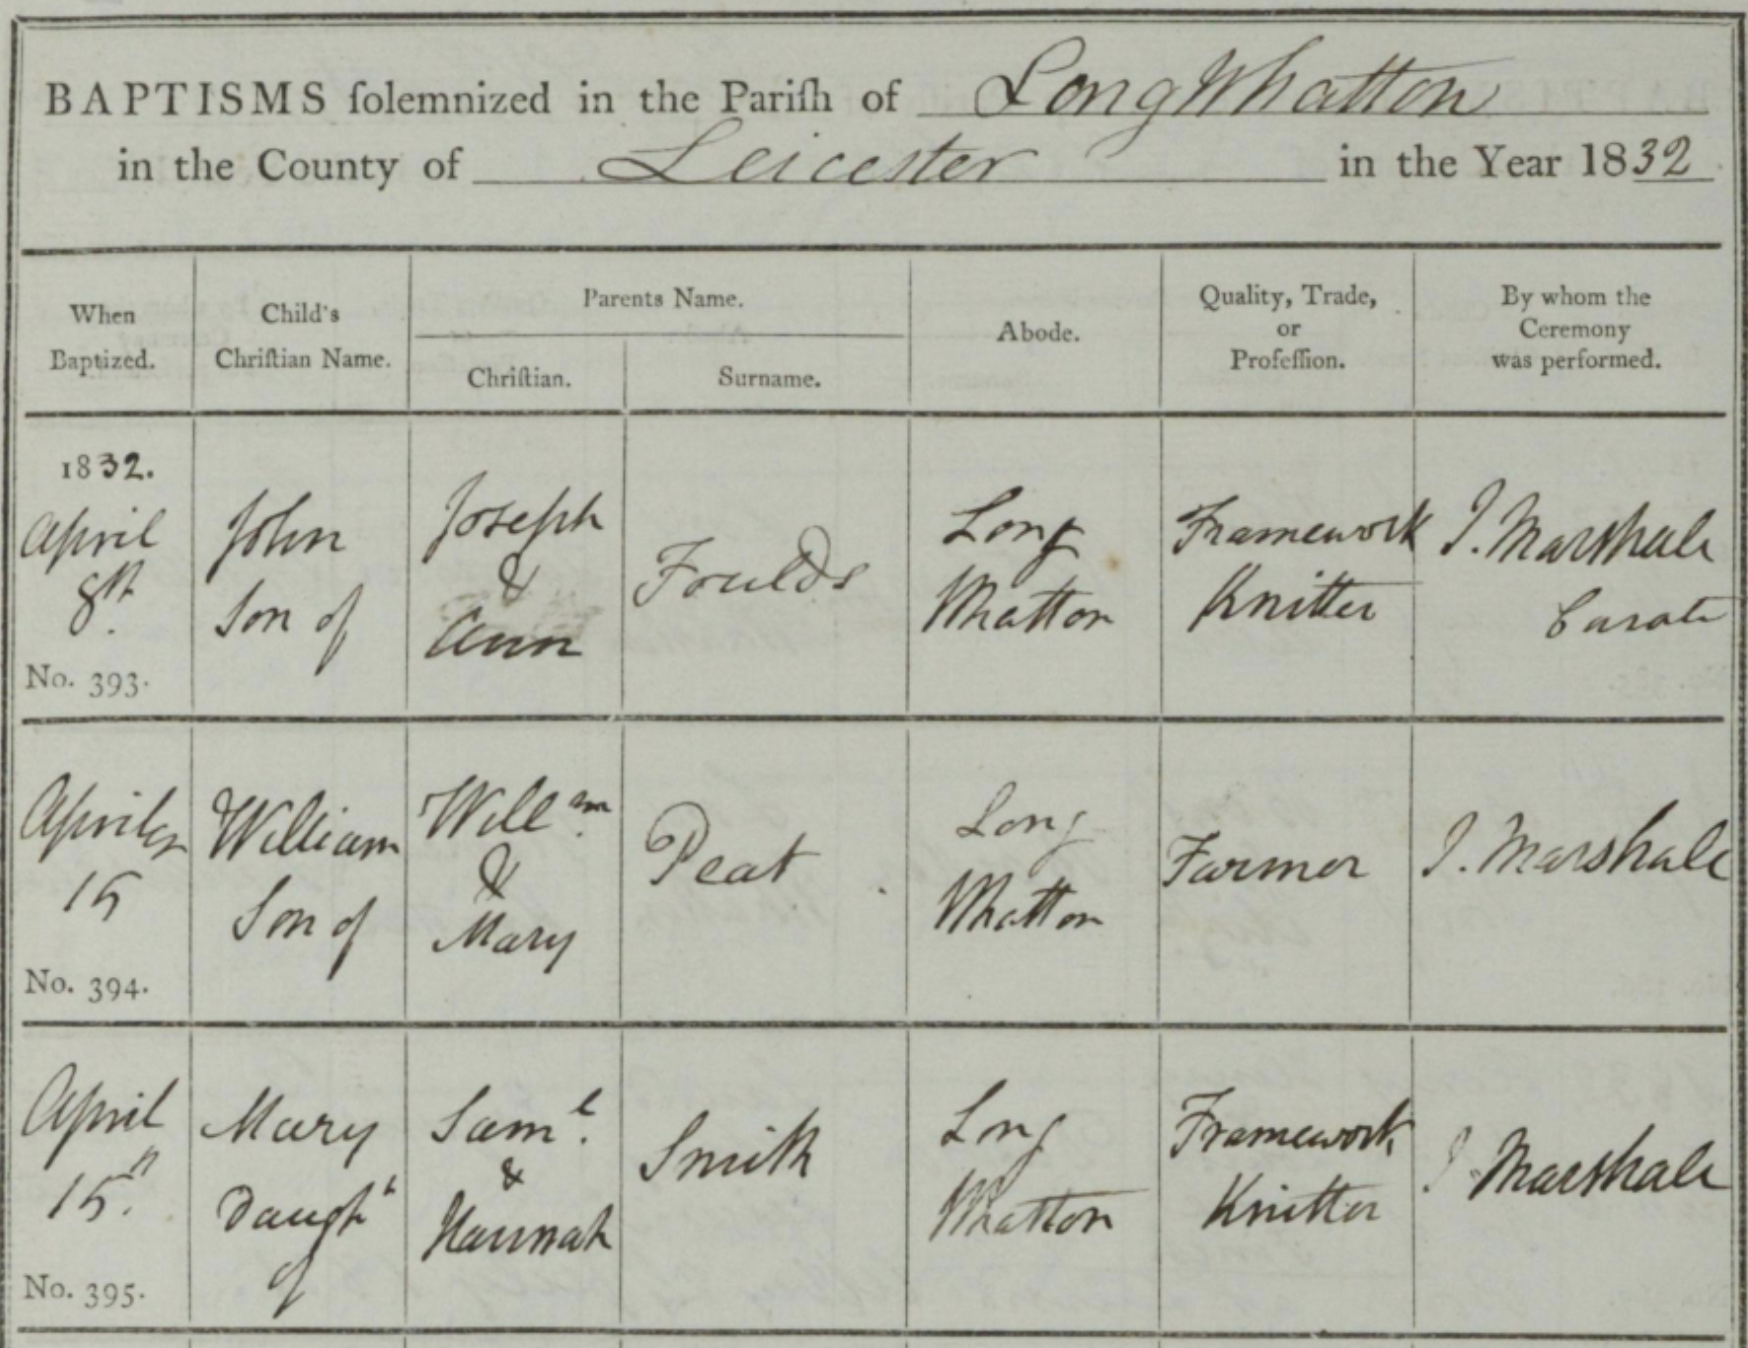 BAPTISMS ſolemnized in the Pariſh of Long Whatton
in the County of Leicester in the Year 1832
When
Baptized.
Child's
Chriſtian Name.
Parents Name.
Chriſtian.
Surname.
Abode.
Quality, Trade,
or
Profeſſion.
By whom the
Ceremony
was performed.
1832.
April
8th.
No. 393.
John
Son of
Joseph
&
Ann
Foulds
Long
Whatton
Framework
Knitter
J. Marshall
Curate
April
15
No. 394.
William
Son of
Willm.
&
Mary
Peat
Long
Whatton
Farmer
J. Marshall
April
15th.
No. 395.
Mary
Daughr
of
Saml.
&
Hannah
Smith
Long
Whatton
Framework
Knitter
J. Marshall